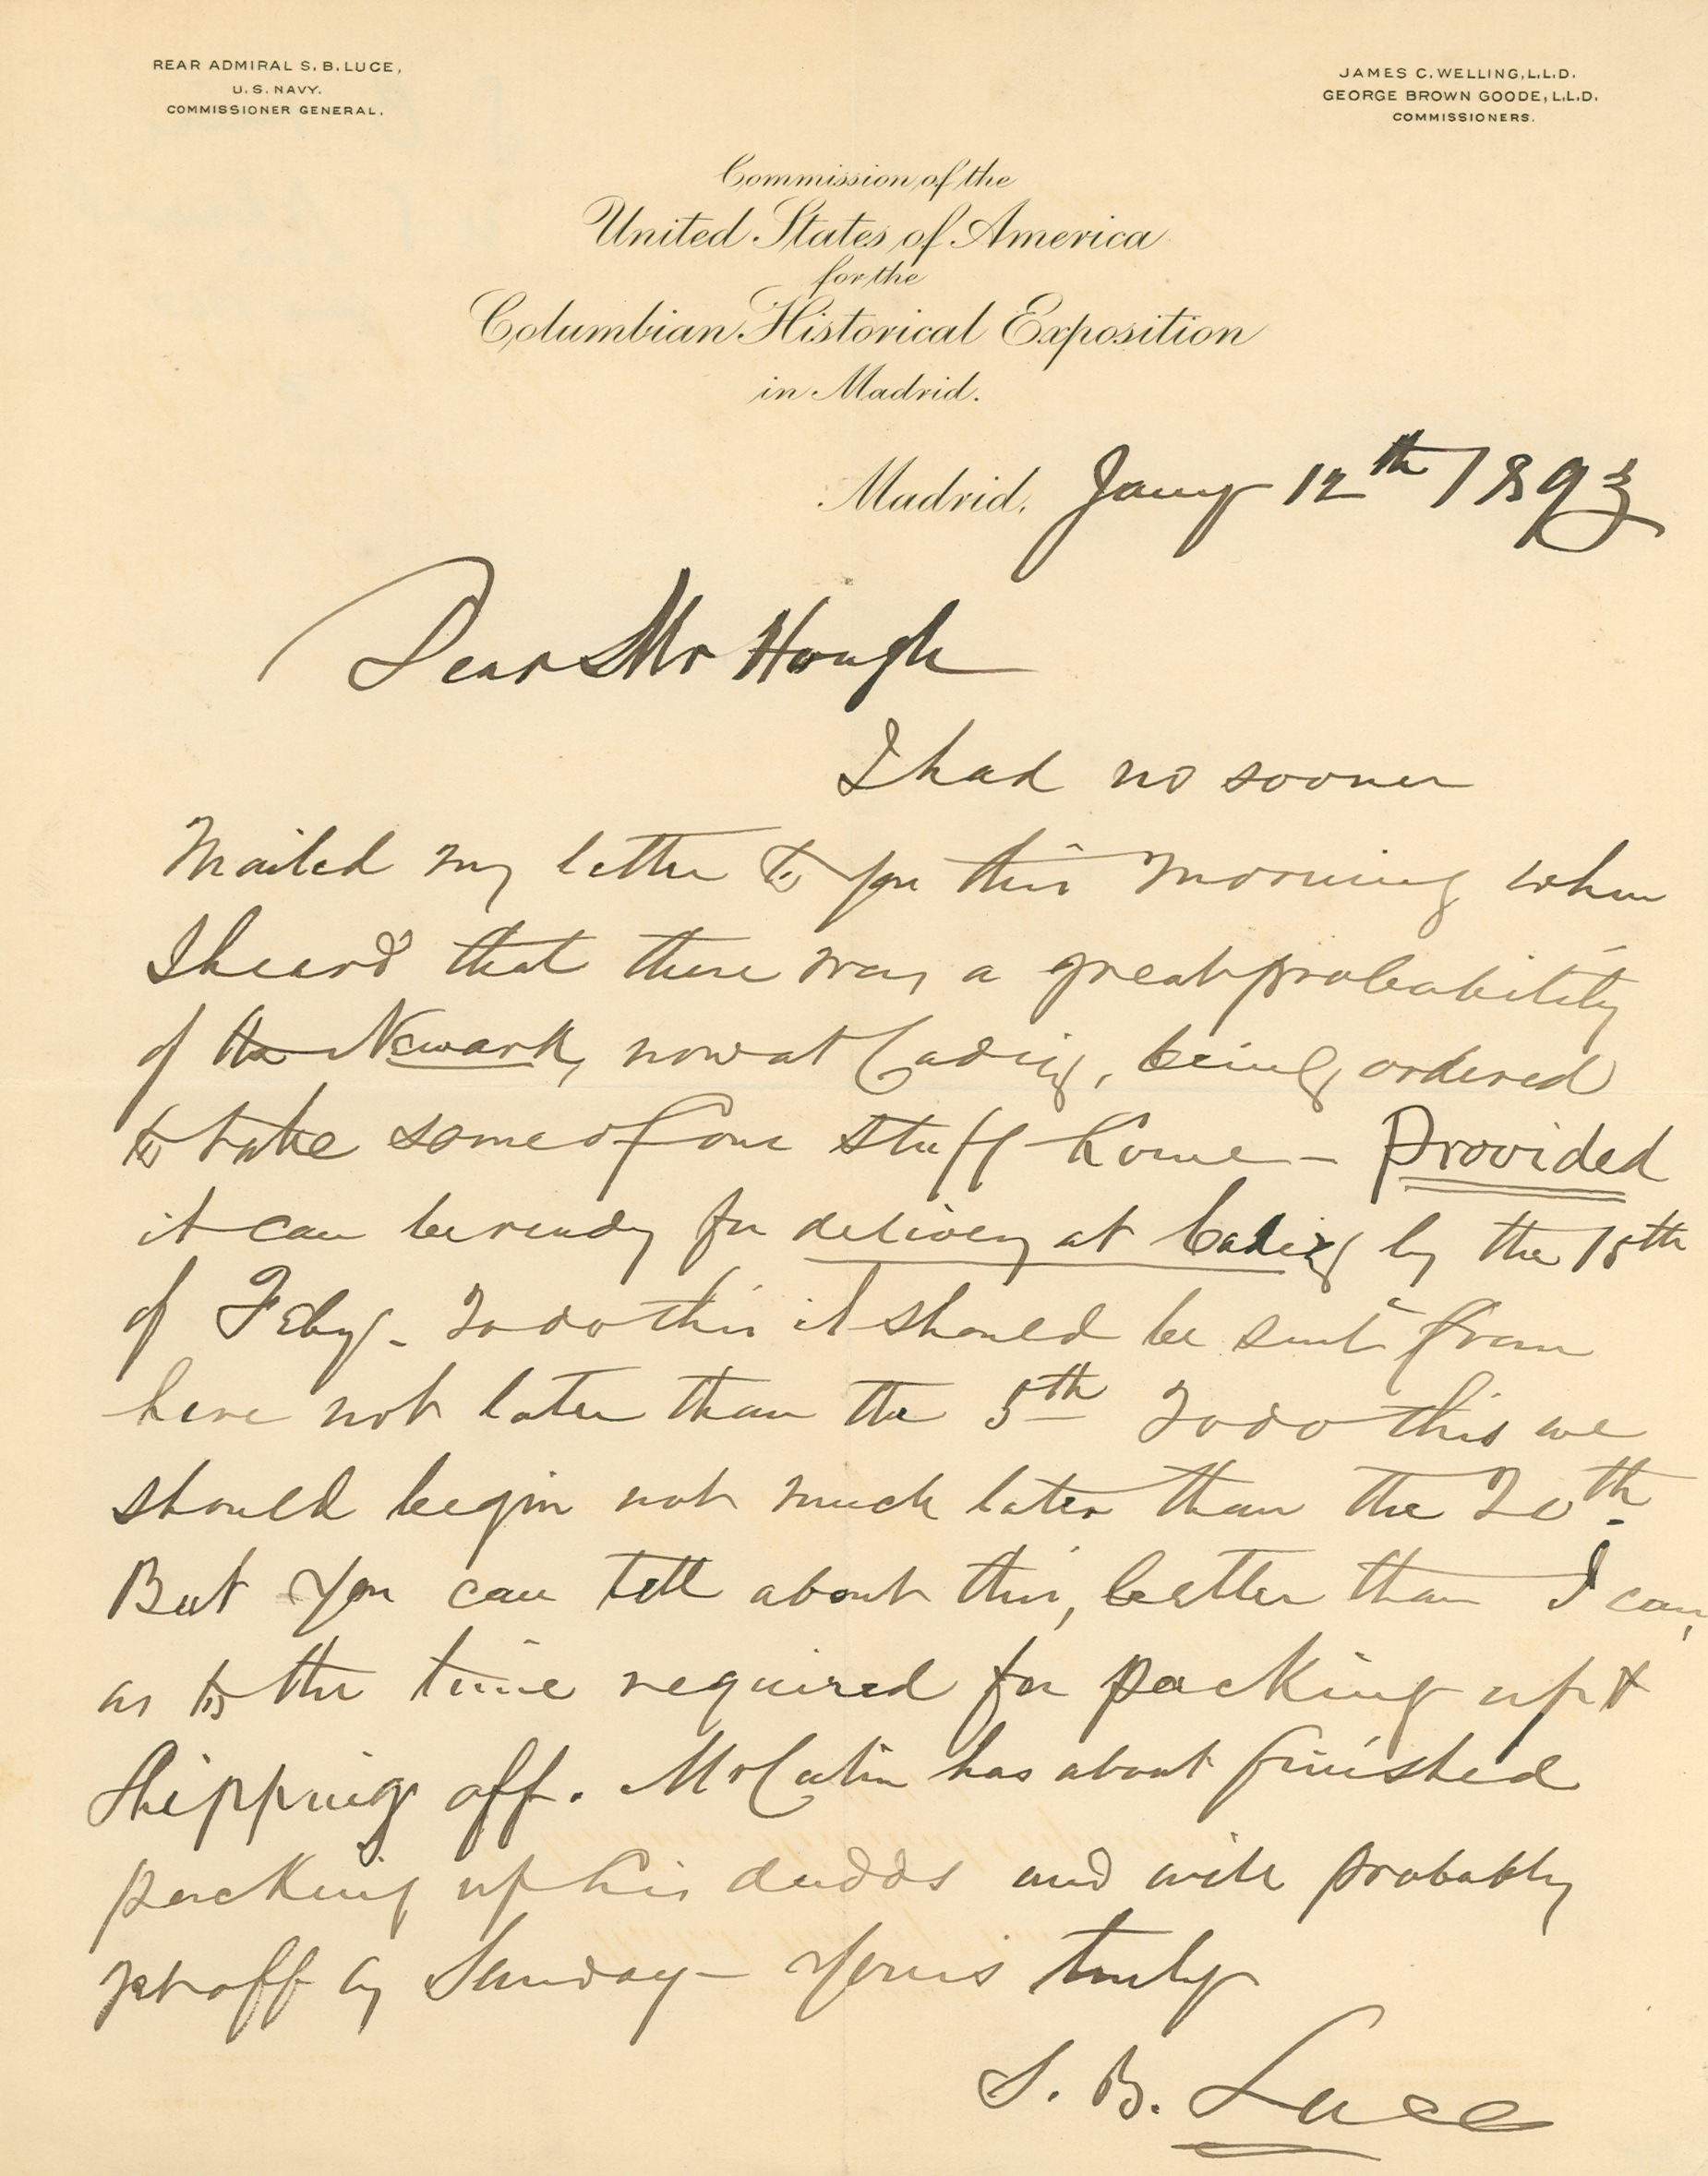 REAR ADMIRAL S. B. LUCE,
U. S. NAVY.
COMMISSIONER GENERAL.
JAMES C. WELLING, L.L.D.
GEORGE BROWN GOODE, L.L.D.
COMMISSIONERS.
Commission of the
United States of America
for the
Columbian Historical Exposition
in Madrid.
Madrid, Jany 12th 1893
Dear Mr Hough
I had no sooner
mailed my letter to you this morning when
I heard that there was a great probability
of the Newark, now at Cadiz, being ordered
to take some of our stuff home – Provided
it can be ready for delivery at Cadiz by the 15th
of Feby. To do this it should be sent from
here not later than the 5th To do this we
should begin not much later than the 20th.
But you can tell about this, better than I can,
as to the time required for packing up &
shipping off. Mr Catin has about finished
packing up his dudds and will probably
get off by Sunday – Yours truly
S. B. Luce